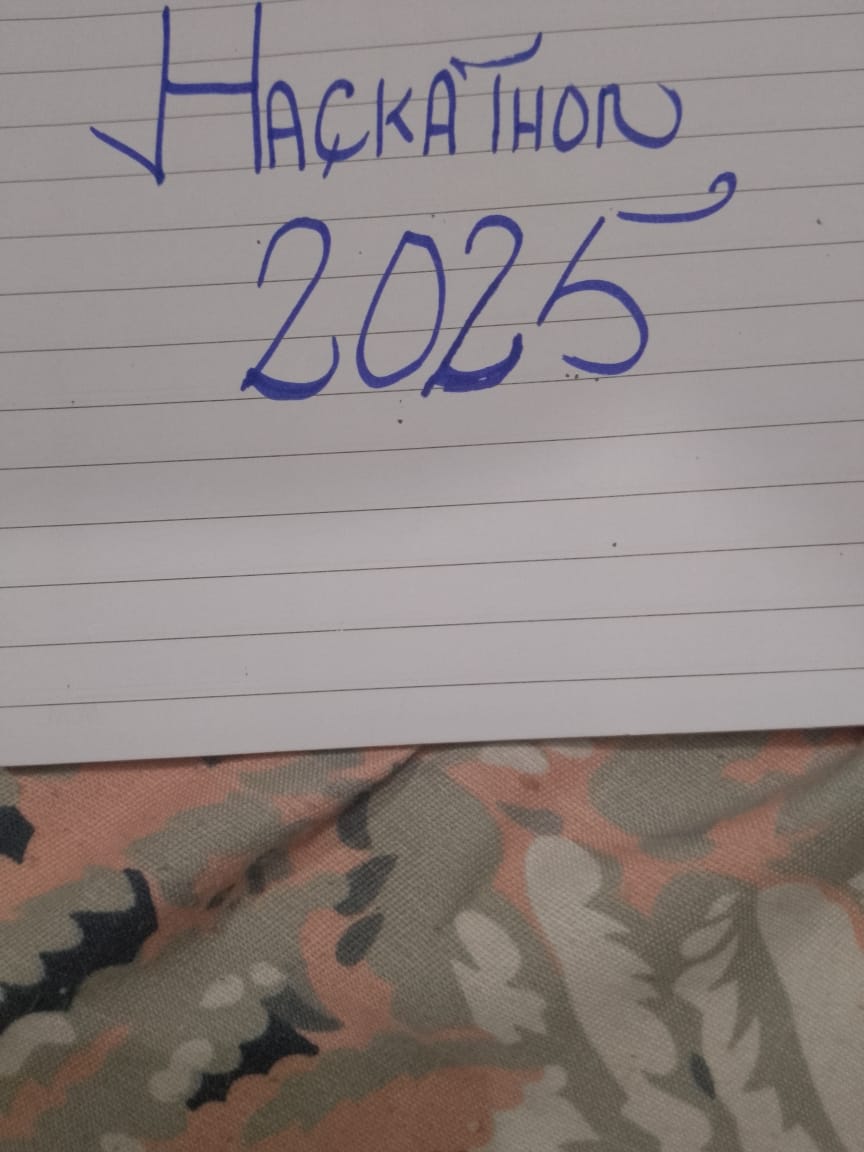 HACKATHON
2025